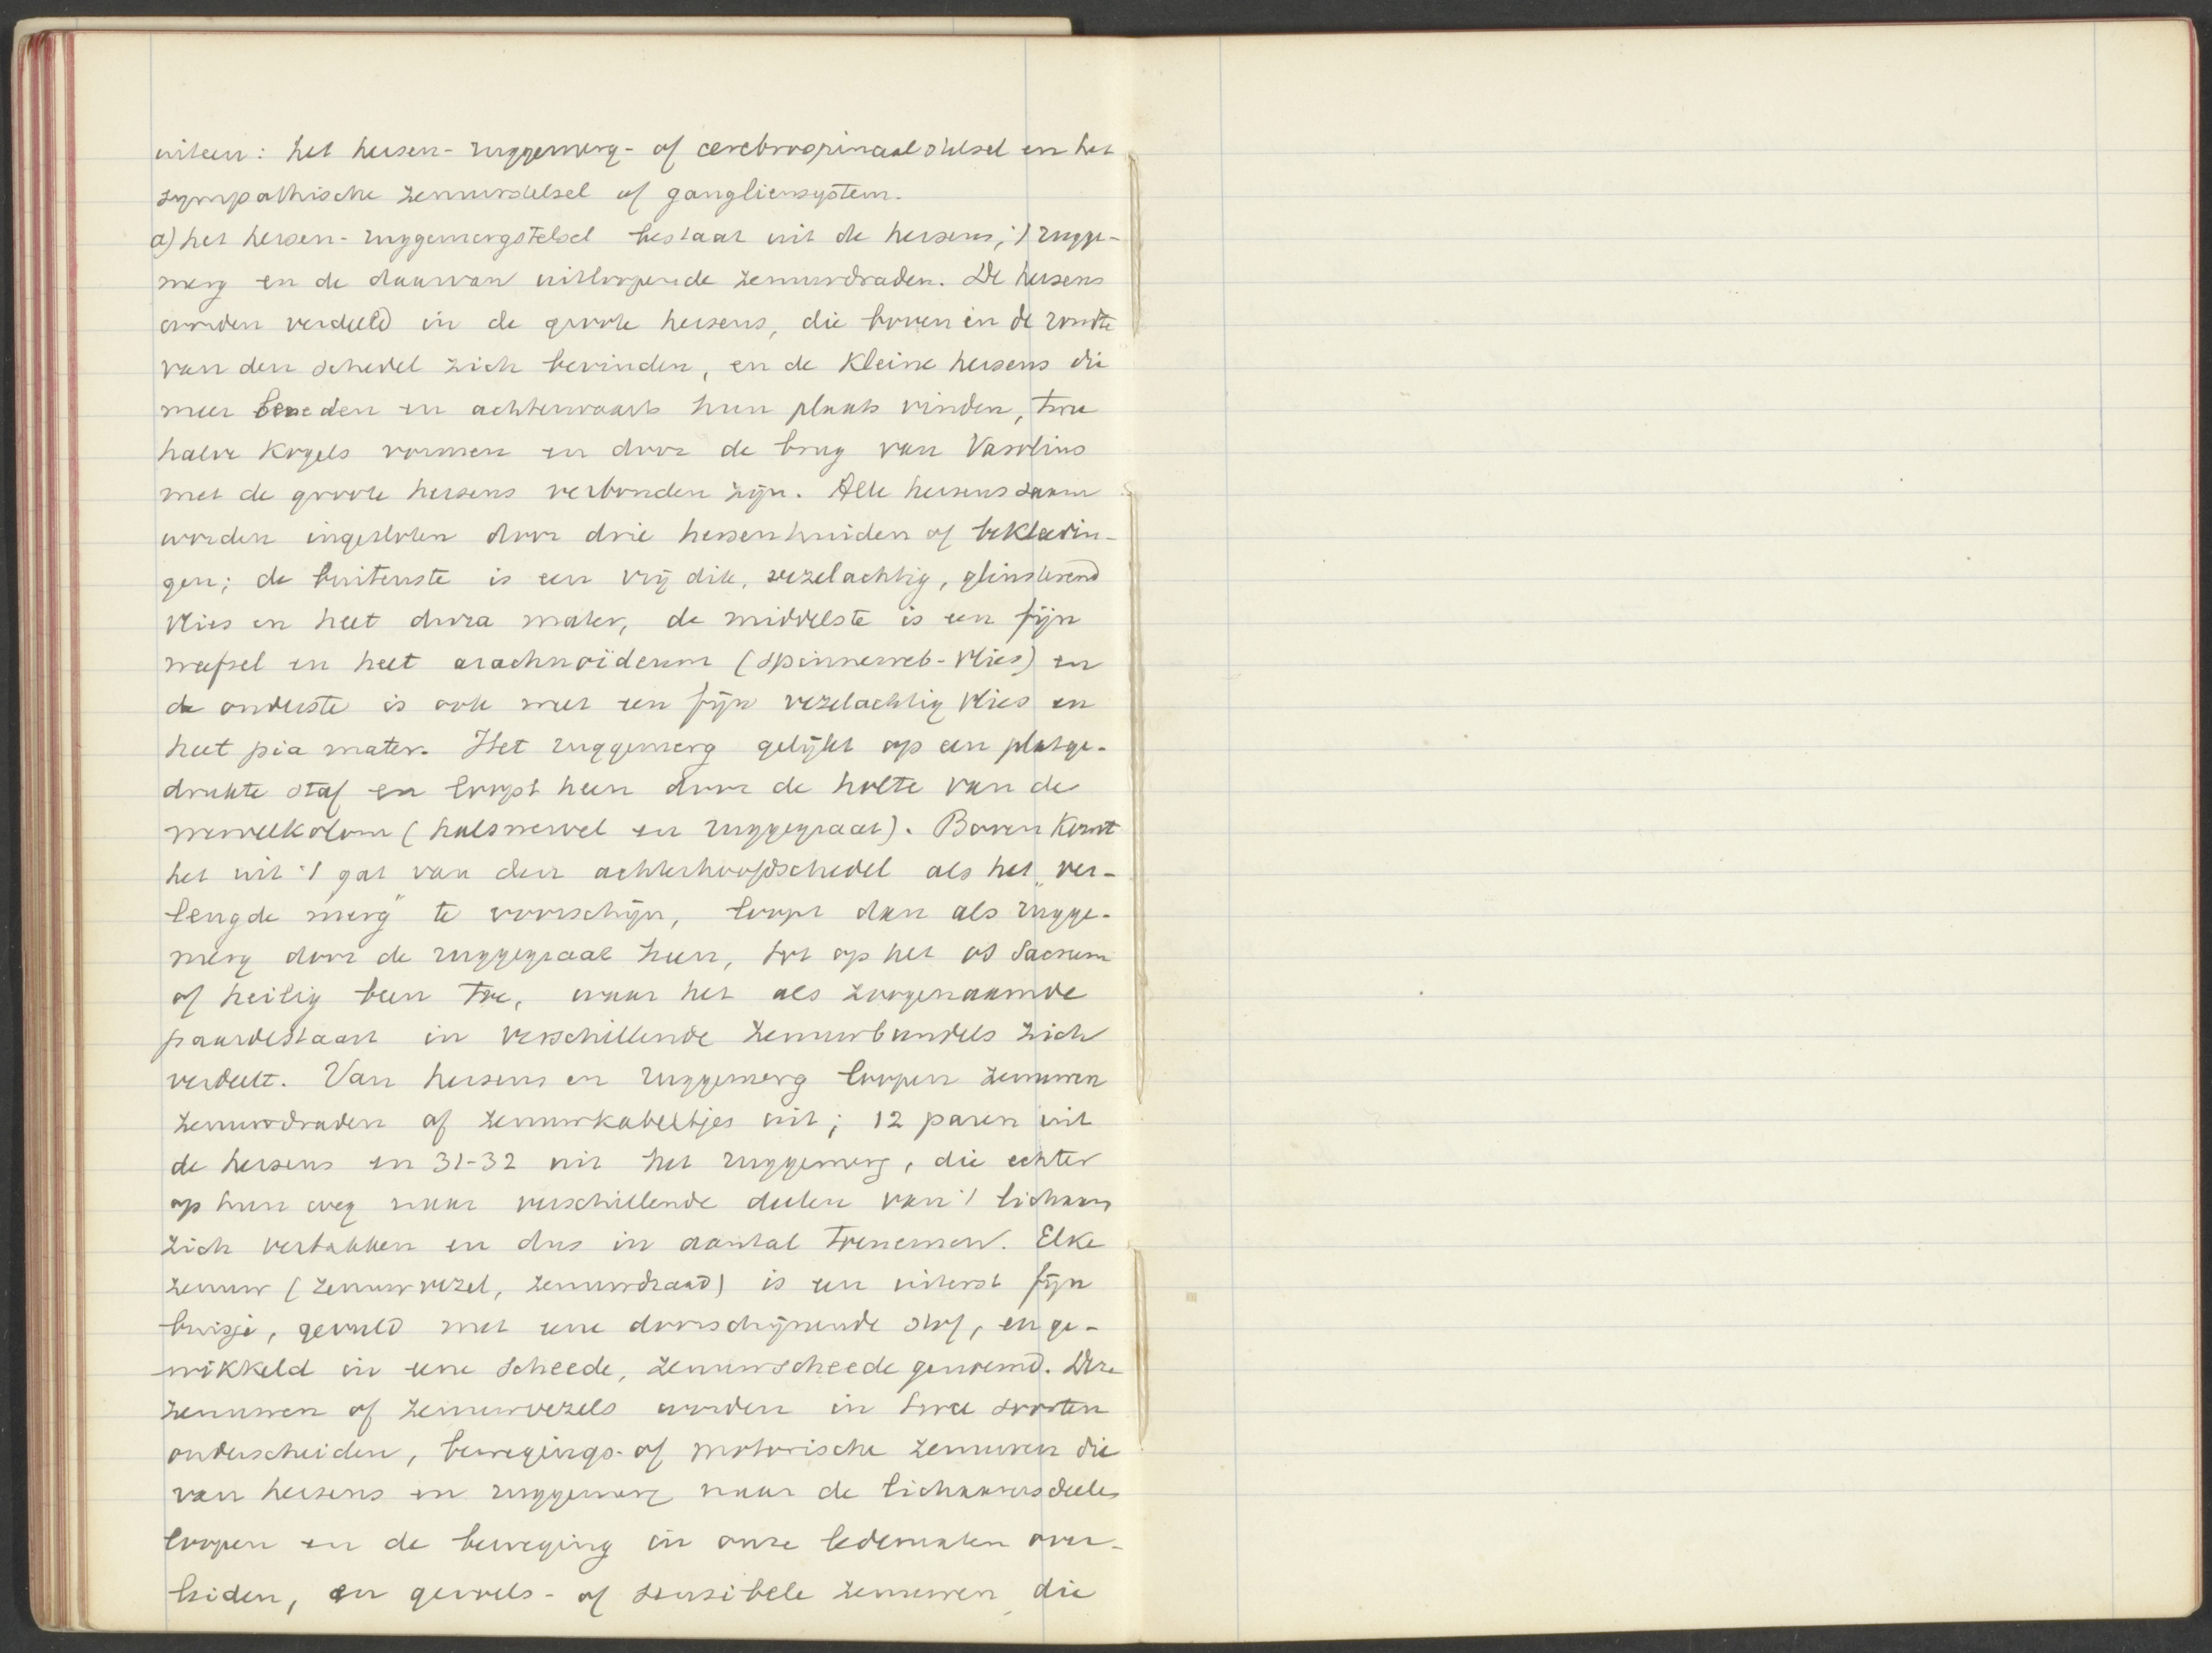 uiteen: het hersen- ruggemerg- of cerebrospinaal stelsel en het
sympathische zenuwstelsel of gangliensysteem.
a) het hersen-ruggemergstelsel bestaat uit de hersens, 't rugge-
merg en de daarvan uitloopende zenuwdraden. De hersens
worden verdeeld in de groote hersens, die boven in de rondte
van den schedel zich bevinden, en de kleine hersens die
meer beneden en achterwaarts hun plaats vinden, twee
halve kogels vormen en door de brug van Varolius
met de groote hersens verbonden zijn. Alle hersens saam
worden ingesloten door drie hersenhuiden of bekleedin-
gen; de buitenste is een vrij dik, vezelachtig, glinsterend
vlies en heet dura mater, de middelste is een fijn
weefsel en heet arachnoïdeum (spinneweb-vlies) en
de onderste is ook weer een fijn vezelachtig vlies en
heet pia mater. Het ruggemerg gelijkt op een platge-
drukte staf en loopt heen door de holte van de
wervelkolom (halswervel en ruggegraat). Boven komt
het uit 't gat van den achterhoofdschedel als het „ver-
lengde merg" te voorschijn, loopt dan als rugge-
merg door de ruggegraat heen, tot op het os sacrum
of heilig been toe, waar het als zoogenaamde
paardestaart in verschillende zenuwbundels zich
verdeelt. Van hersens en ruggemerg loopen zenuwen
zenuwdraden of zenuwkabeltjes uit; 12 paren uit
de hersens en 31-32 uit het ruggemerg, die echter
op hun weg naar verschillende deelen van 't lichaam
zich vertakken en dus in aantal toenemen. Elke
zenuw (zenuwvezel, zenuwdraad) is een uiterst fijn
buisje, gevuld met eene doorschijnende stof, en ge-
wikkeld in eene scheede, zenuwscheede genoemd. Deze
zenuwen of zenuwvezels worden in twee soorten
onderscheiden, bewegings- of motorische zenuwen die
van hersens en ruggemerg naar de lichaamsdeelen
loopen en de beweging in onze ledematen over-
leiden, en gevoels- of sensibele zenuwen, die